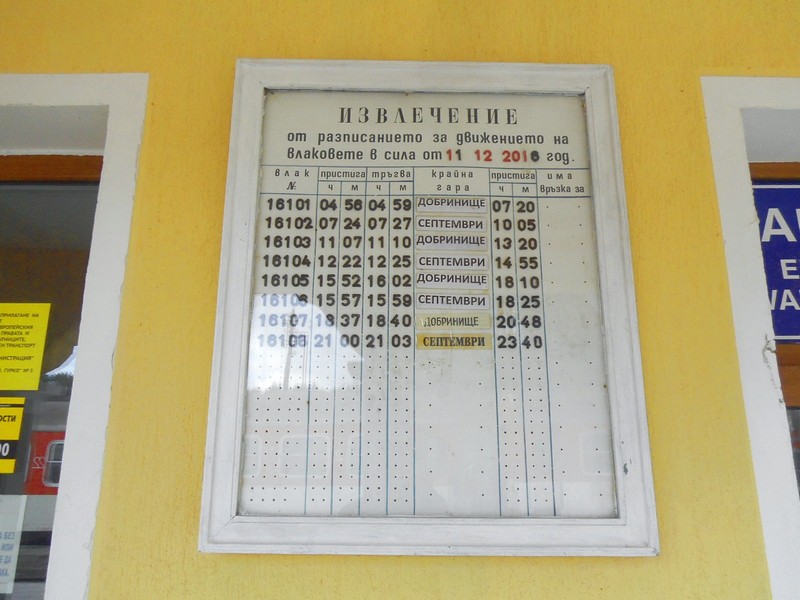 ИЗВЛЕЧЕНИЕ
от разписанието за движението на
влаковете в сила от 11 12 2016 год.
влак № пристига ч м тръгва ч м крайна гара пристига ч м има връзка за
16101 04 56 04 59 ДОБРИНИЩЕ 07 20
16102 07 24 07 27 СЕПТЕМВРИ 10 05
16103 11 07 11 10 ДОБРИНИЩЕ 13 20
16104 12 22 12 25 СЕПТЕМВРИ 14 55
16105 15 52 16 02 ДОБРИНИЩЕ 18 10
16106 15 57 15 59 СЕПТЕМВРИ 18 25
16107 18 37 18 40 ДОБРИНИЩЕ 20 48
16108 21 00 21 03 СЕПТЕМВРИ 23 40
ПРИЛАГАНЕ НА
ЕВРОПЕЙСКИЯ
ПРАВАТА И